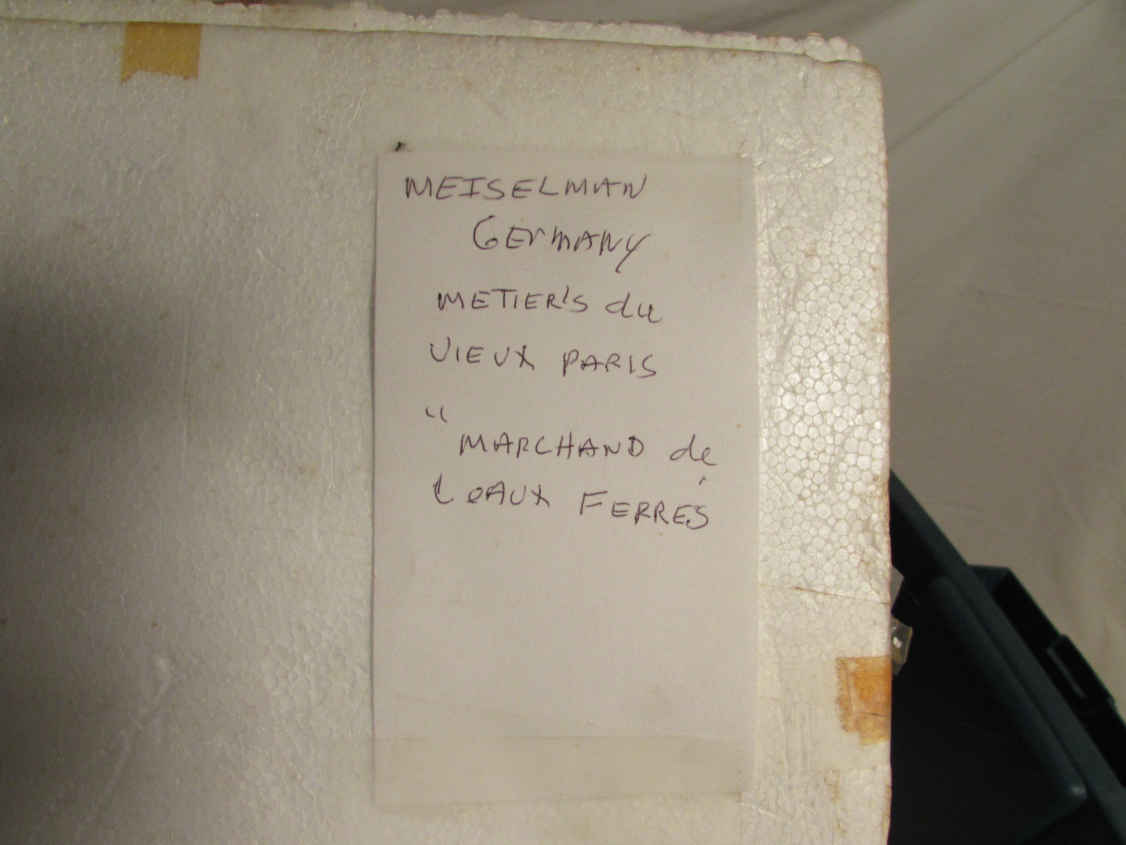 MEISELMAN
GERMANY
METIER'S du
VIEUX PARIS
"
MARCHAND de
L eAUX FERRÉS